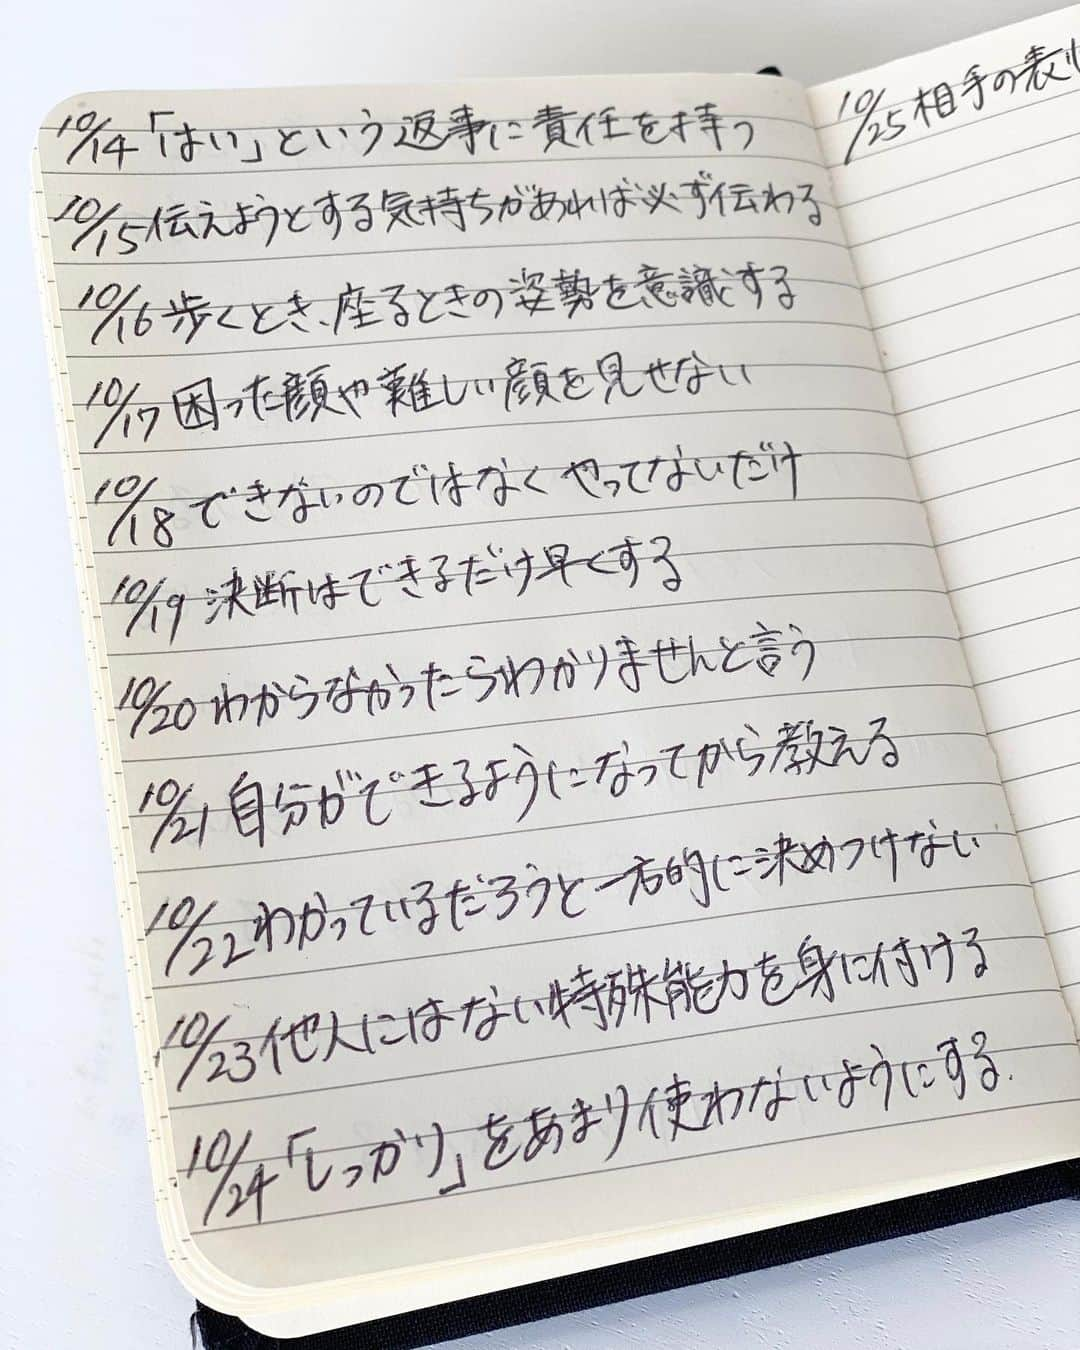 10/14「はい」という返事に責任を持つ
10/15伝えようとする気持ちがあれば必ず伝わる
10/16歩くとき、座るときの姿勢を意識する
10/17困った顔や難しい顔を見せない
10/18できないのではなくやってないだけ
10/19決断はできるだけ早くする
10/20わからなかったらわかりませんと言う
10/21自分ができるようになってから教える
10/22わかっているだろうと一方的に決めつけない
10/23他人にはない特殊能力を身に付ける
10/24「しっかり」をあまり使わないようにする.
10/25相手の表